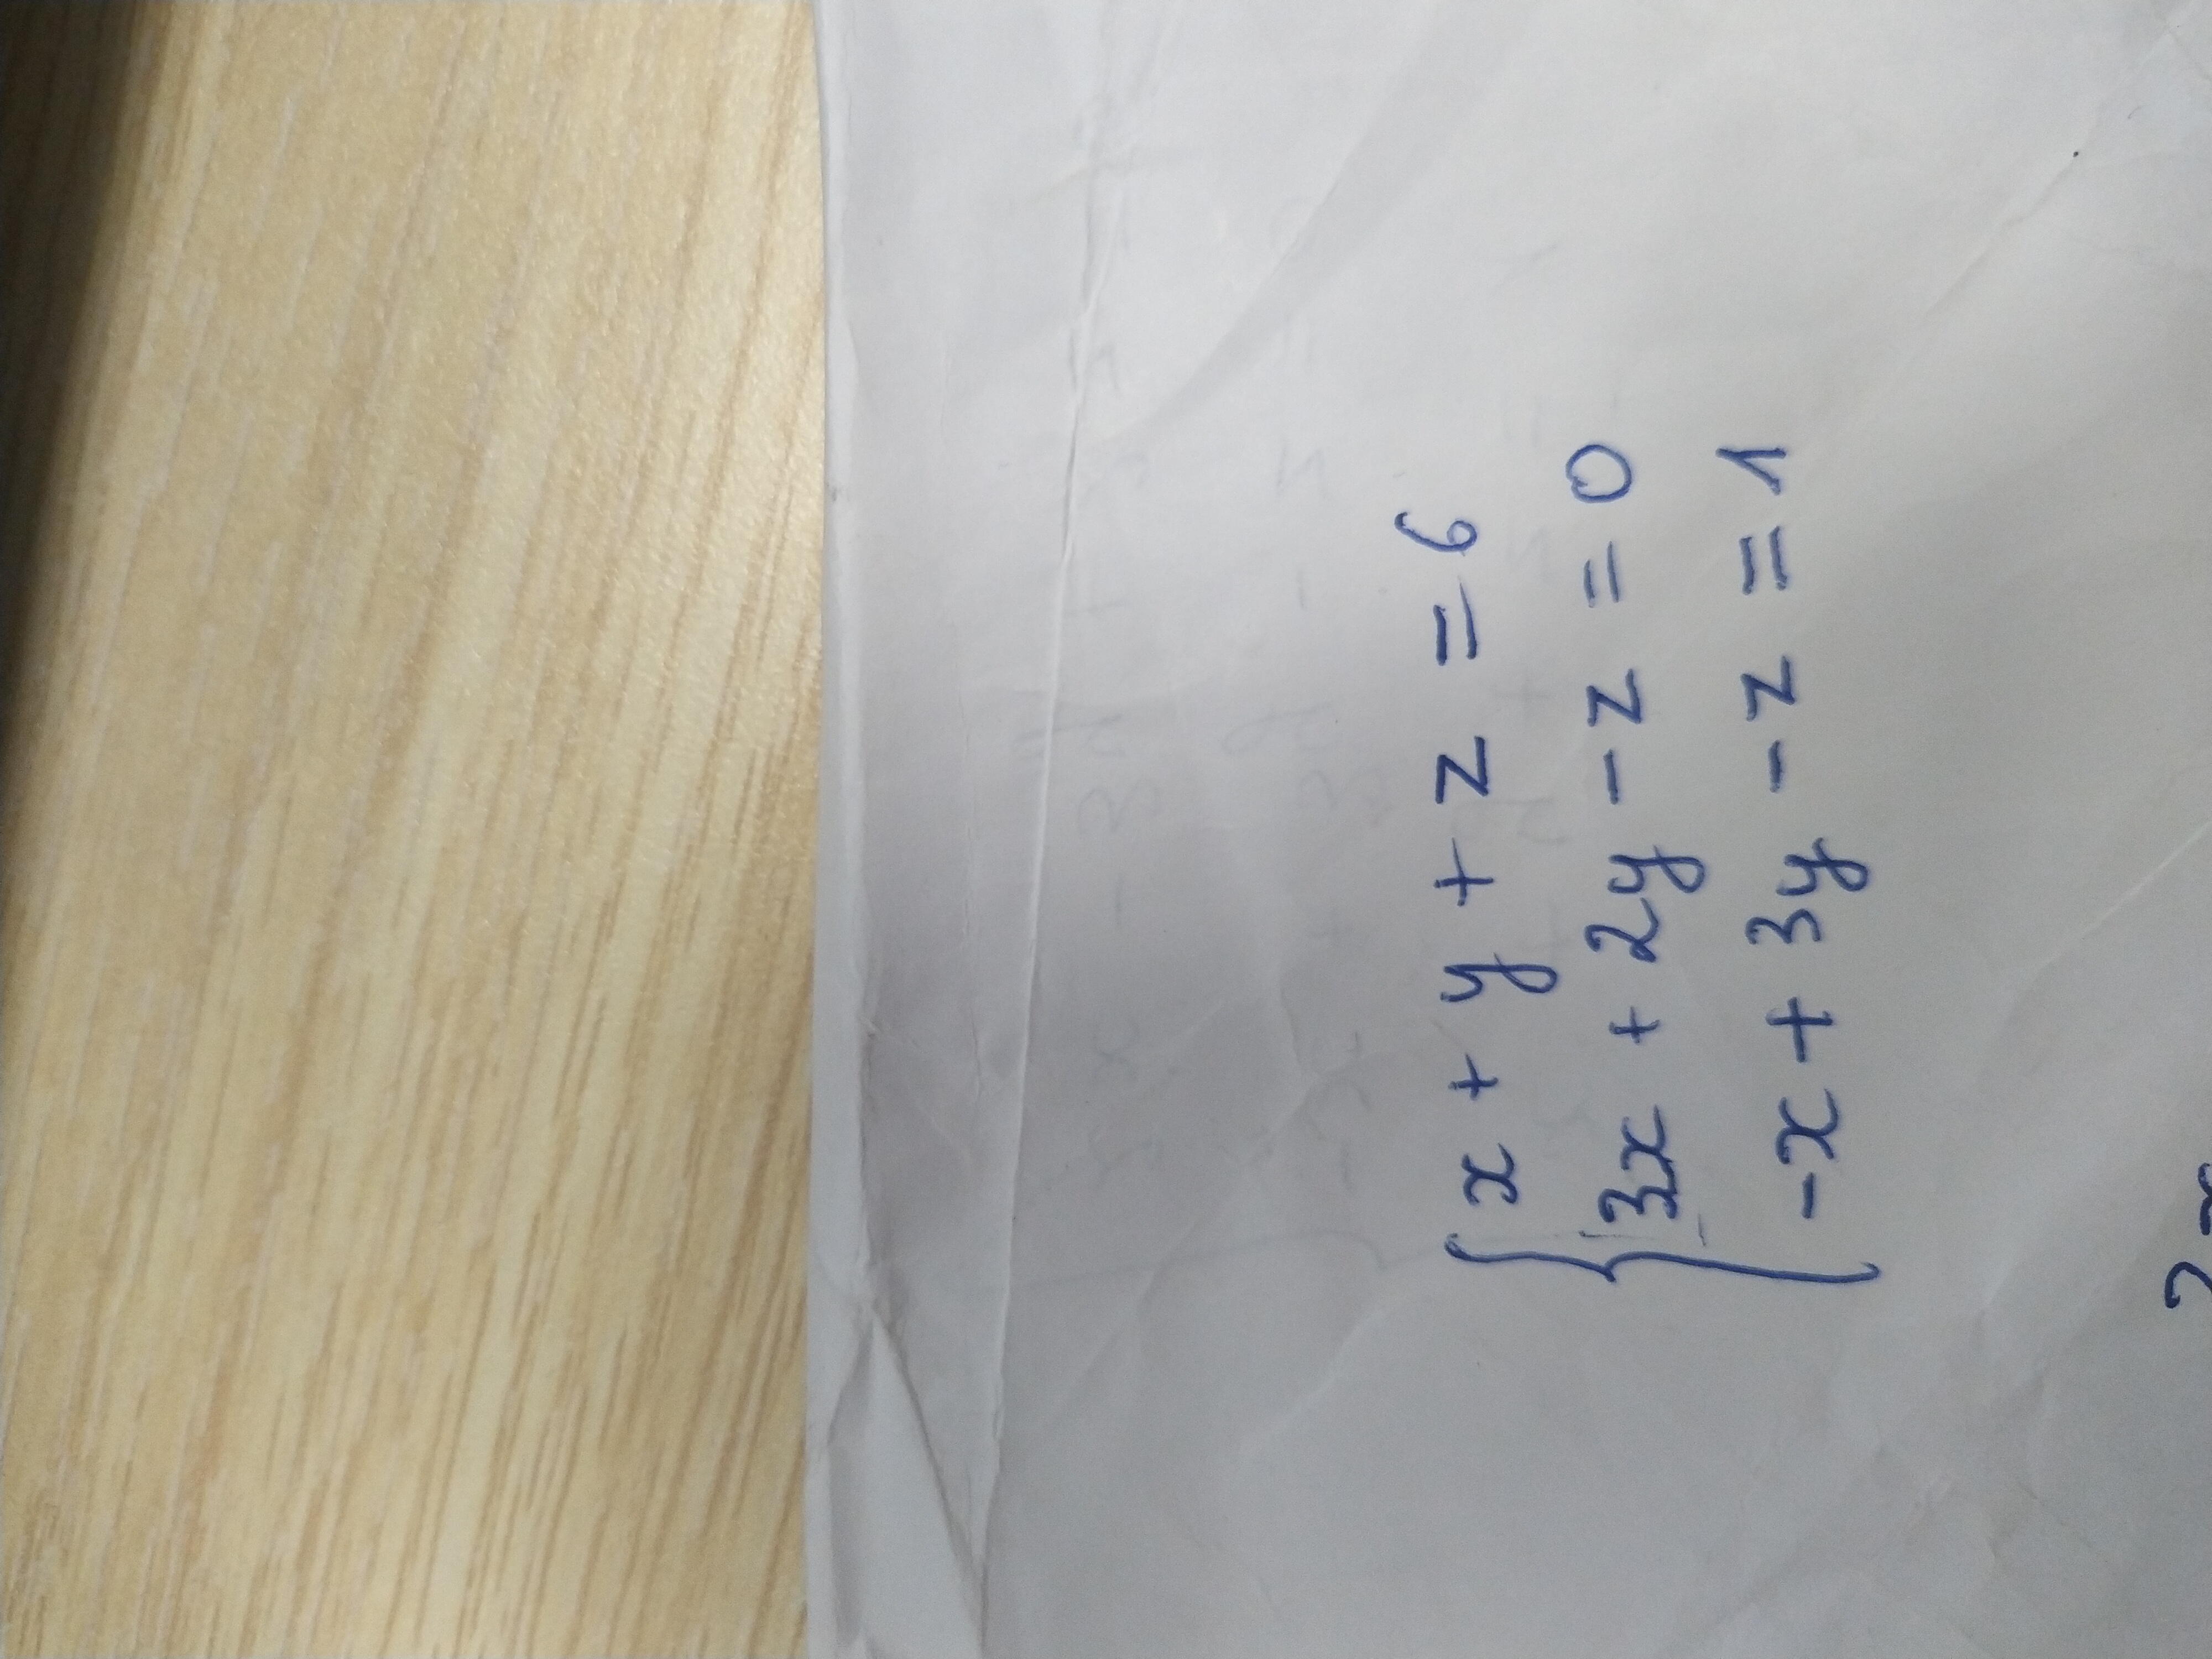 x + y + z = 6
3x + 2y - z = 0
-x + 3y - z = 1